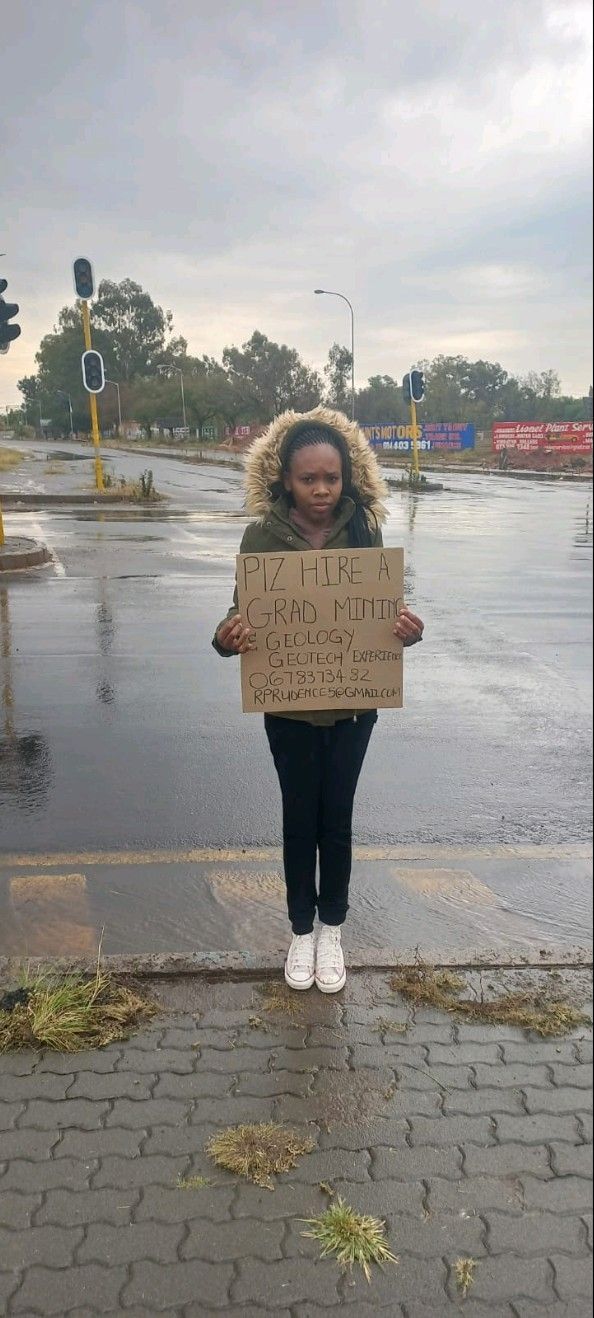 PIZ HIRE A
GRAD MINING
& GEOLOGY
GEOTECH EXPERIENC
0678373482
RPRUDENCE5@GMAIL.COM
MOTORS
Lionel Plant Serv